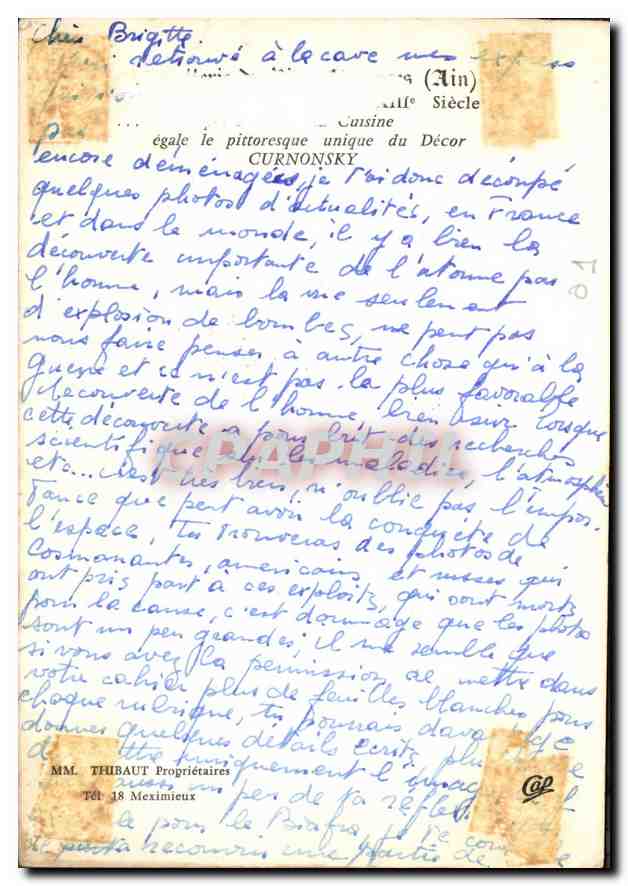 Chère Brigitte.
retrouvé à la cave mes express
(Ain)
XIIIe Siècle
Cuisine
égale le pittoresque unique du Décor
CURNONSKY
encore déménagées, je t'ai donc découpé
quelques photos d'actualités, en France
et dans le monde, il y a bien la
découverte importante de l'atome pas
l'homme, mais la vue seulement
d'explosion de bombes, ne peut pas
nous faire penser à autre chose qu'à la
guerre et ce n'est pas la plus favorable
découverte de l'homme, bien sûr lorsque
cette découverte a pour but des recherches
scientifiques les maladies, l'atmosphère
etc... c'est très bien, n'oublie pas l'impor-
tance que peut avoir la conquête de
l'espace, tu trouveras des photos de
cosmonautes, américains et russes qui
ont pris part à ces exploits, qui sont morts
pour la cause, c'est dommage que les photos
sont un peu grandes, il me semble que
si vous avez la permission de mettre dans
votre cahier plus de feuilles blanches pour
chaque rubrique, tu pourrais davantage
donner quelques détails écrits, plus
uniquement l'image
aussi un peu de ta réfle
MM. THIBAUT Propriétaires
Tél 18 Meximieux
Cap
pour le Biafra je te
recouvris une partie de
SPAPHIL
01